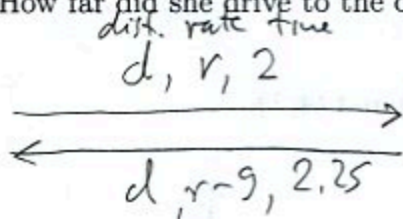 How far did she drive to the
dist. rate time
d, r, 2
d, r-9, 2.25